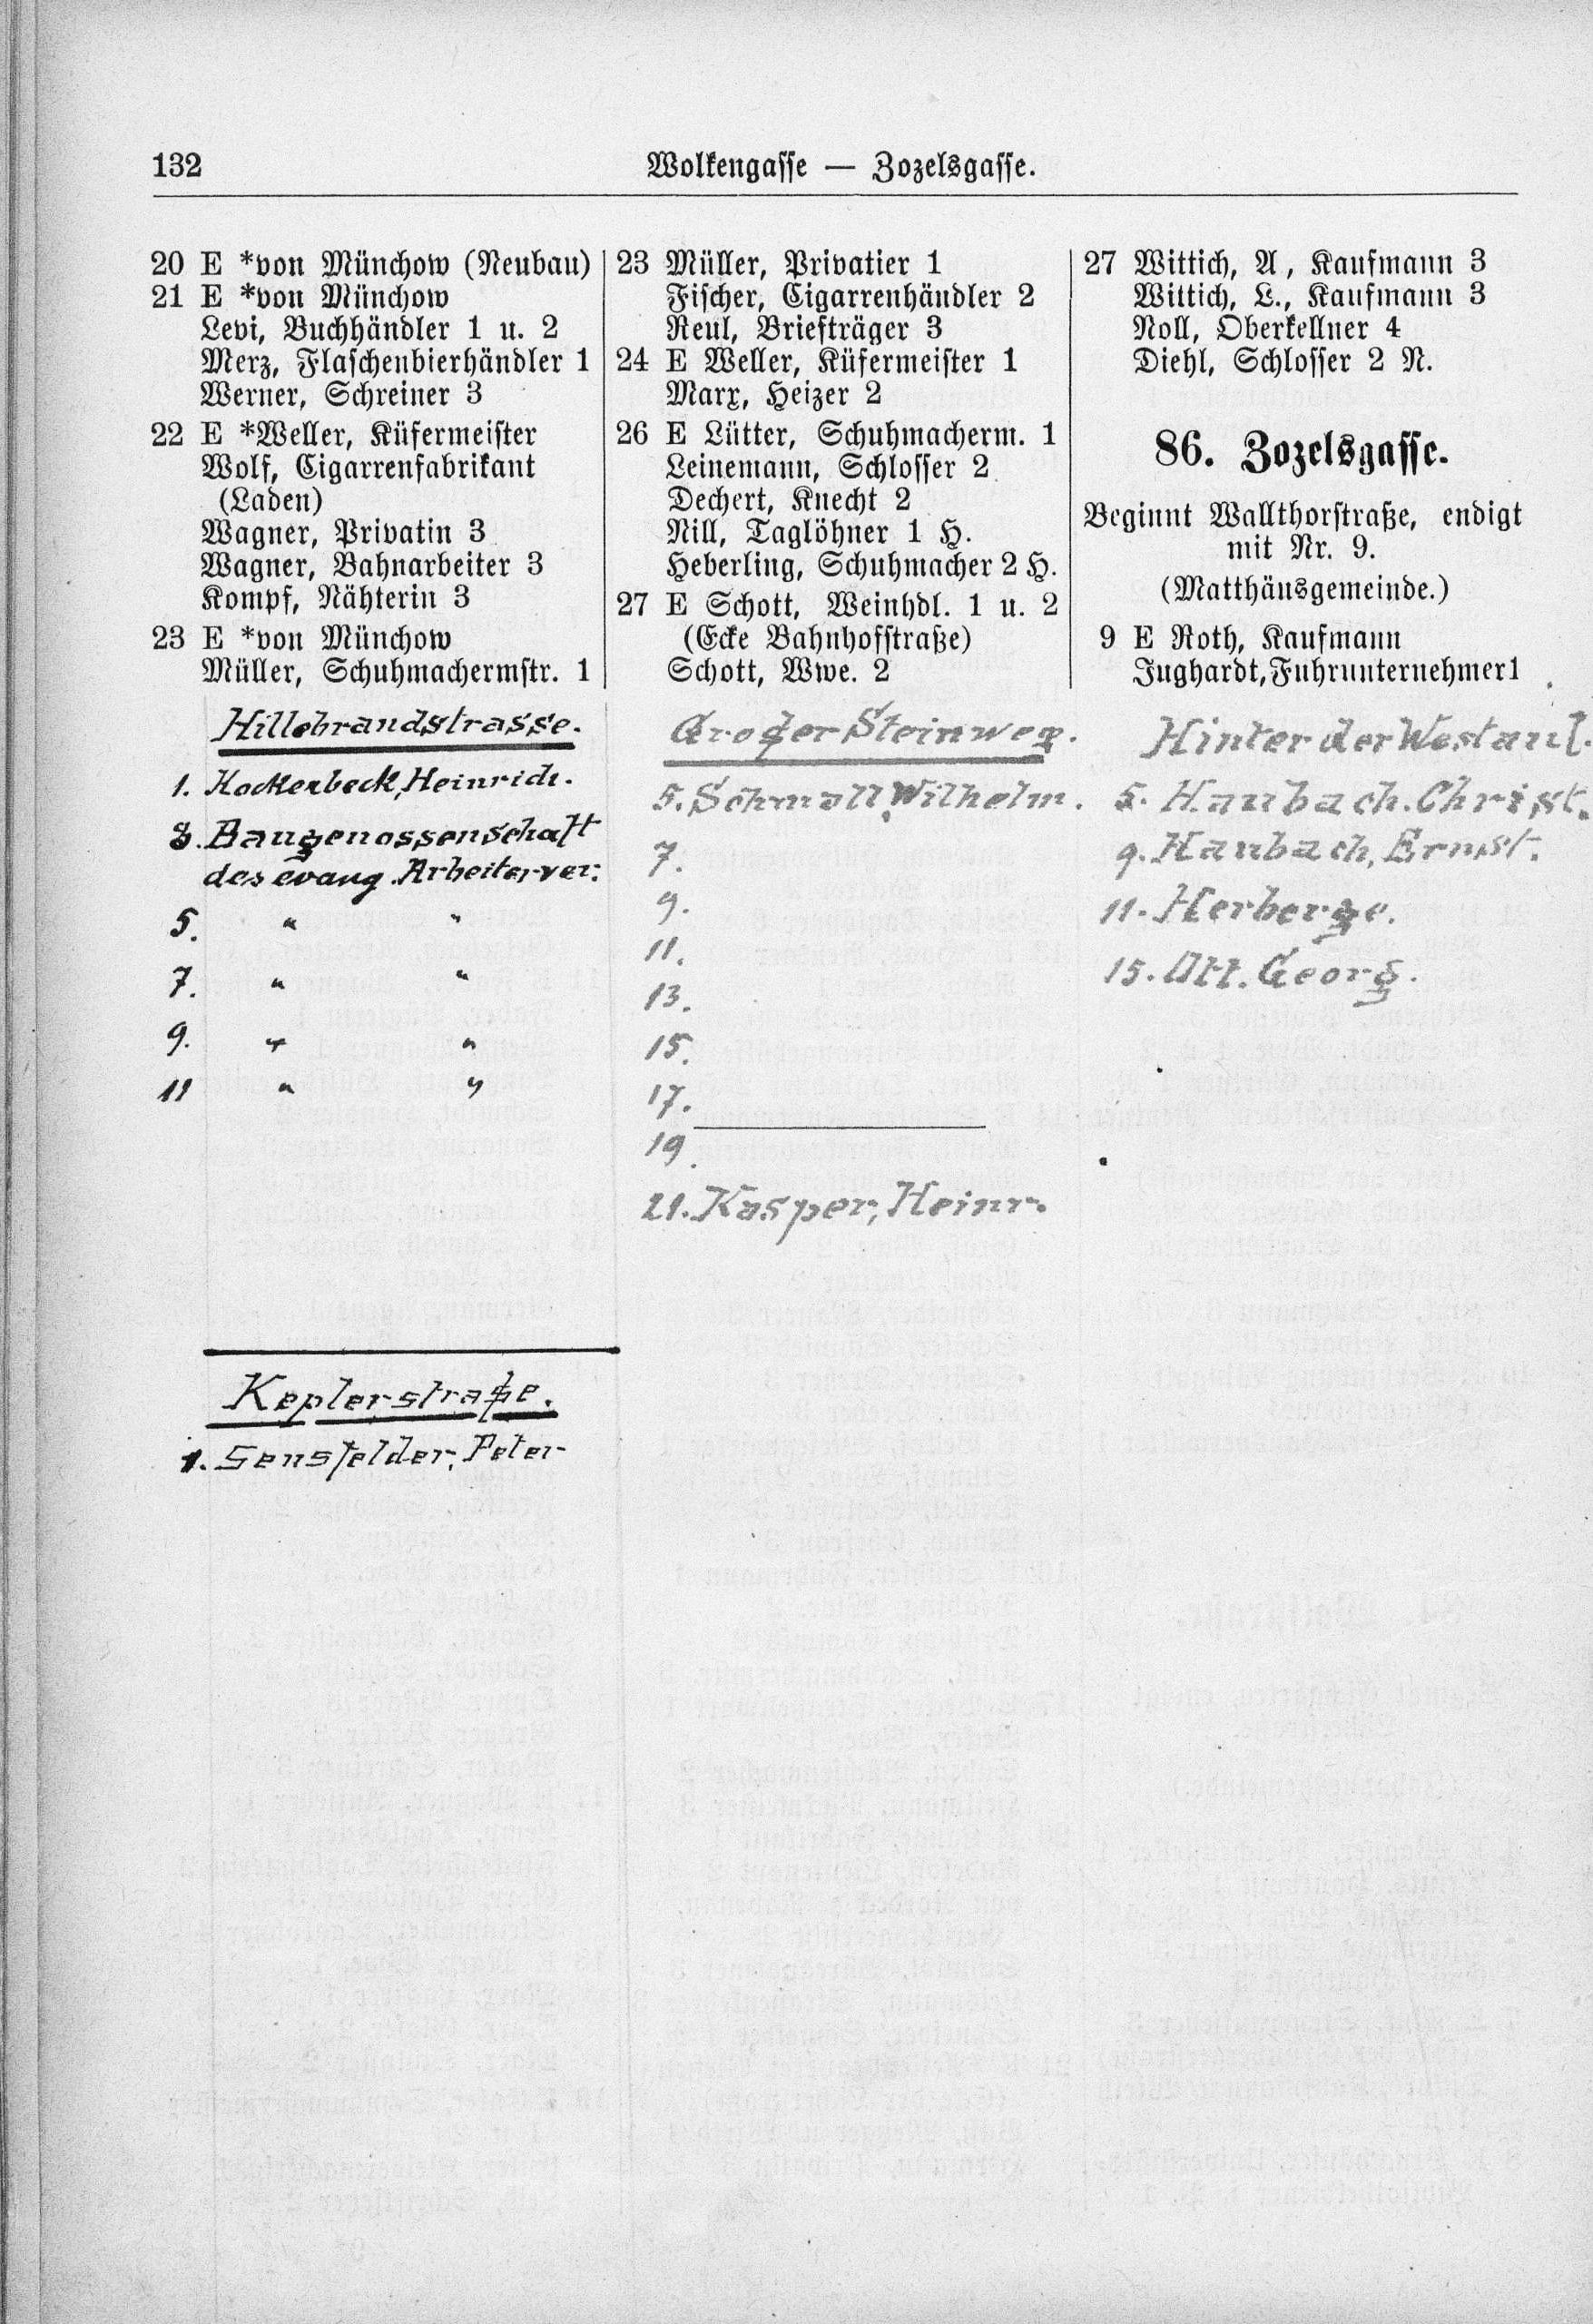 132
Wolkengasse — Zozelsgasse.
20 E *von Münchow (Neubau)
21 E *von Münchow
Levi, Buchhändler 1 u. 2
Merz, Flaschenbierhändler 1
Werner, Schreiner 3
22 E *Weller, Küfermeister
Wolf, Cigarrenfabrikant
(Laden)
Wagner, Privatin 3
Wagner, Bahnarbeiter 3
Kompf, Nähterin 3
23 E *von Münchow
Müller, Schuhmachermstr. 1
Hillebrandstrasse.
1. Hockerbeck, Heinrich.
3. Baugenossenschaft
des evang. Arbeiterver:
5. " "
7. " "
9. " "
11 " "
Keplerstraße.
1. Sensfelder, Peter
23 Müller, Privatier 1
Fischer, Cigarrenhändler 2
Reul, Briefträger 3
24 E Weller, Küfermeister 1
Marx, Heizer 2
26 E Lütter, Schuhmacherm. 1
Leinemann, Schlosser 2
Dechert, Knecht 2
Nill, Taglöhner 1 H.
Heberling, Schuhmacher 2 H.
27 E Schott, Weinhdl. 1 u. 2
(Ecke Bahnhofstraße)
Schott, Wwe. 2
Großer Steinweg.
5. Schmoll, Wilhelm.
7.
9.
11.
13.
15.
17.
19.
21. Kasper, Heinr.
27 Wittich, A, Kaufmann 3
Wittich, L., Kaufmann 3
Noll, Oberkellner 4
Diehl, Schlosser 2 N.
86. Zozelsgasse.
Beginnt Wallthorstraße, endigt
mit Nr. 9.
(Matthäusgemeinde.)
9 E Roth, Kaufmann
Jughardt, Fuhrunternehmer 1
Hinter der Westanl.
5. Haubach. Christ.
9. Haubach, Ernst.
11. Herberge.
15. Ott. Georg.